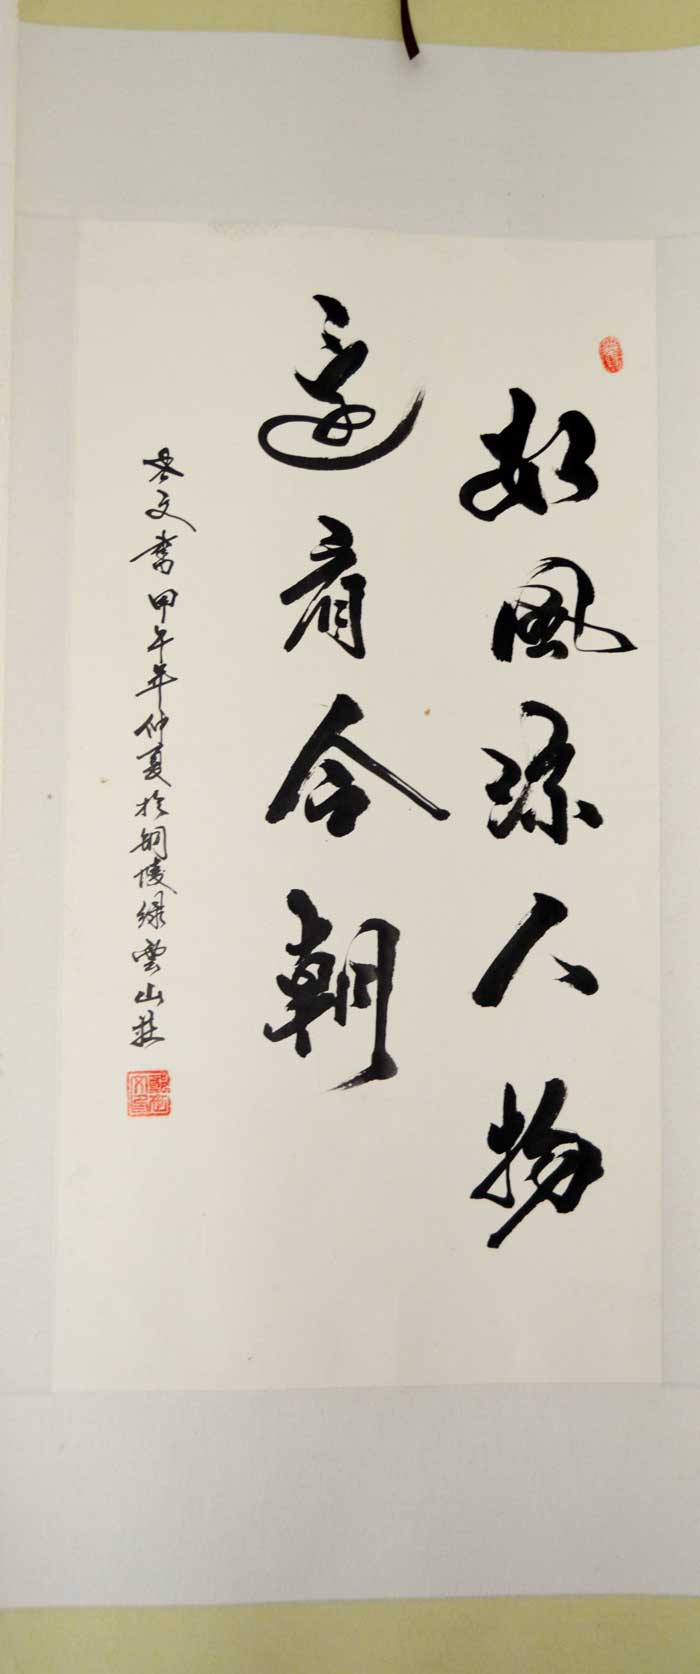 数風流人物
還看今朝
文書甲午年仲夏於銅陵绿雲山莊